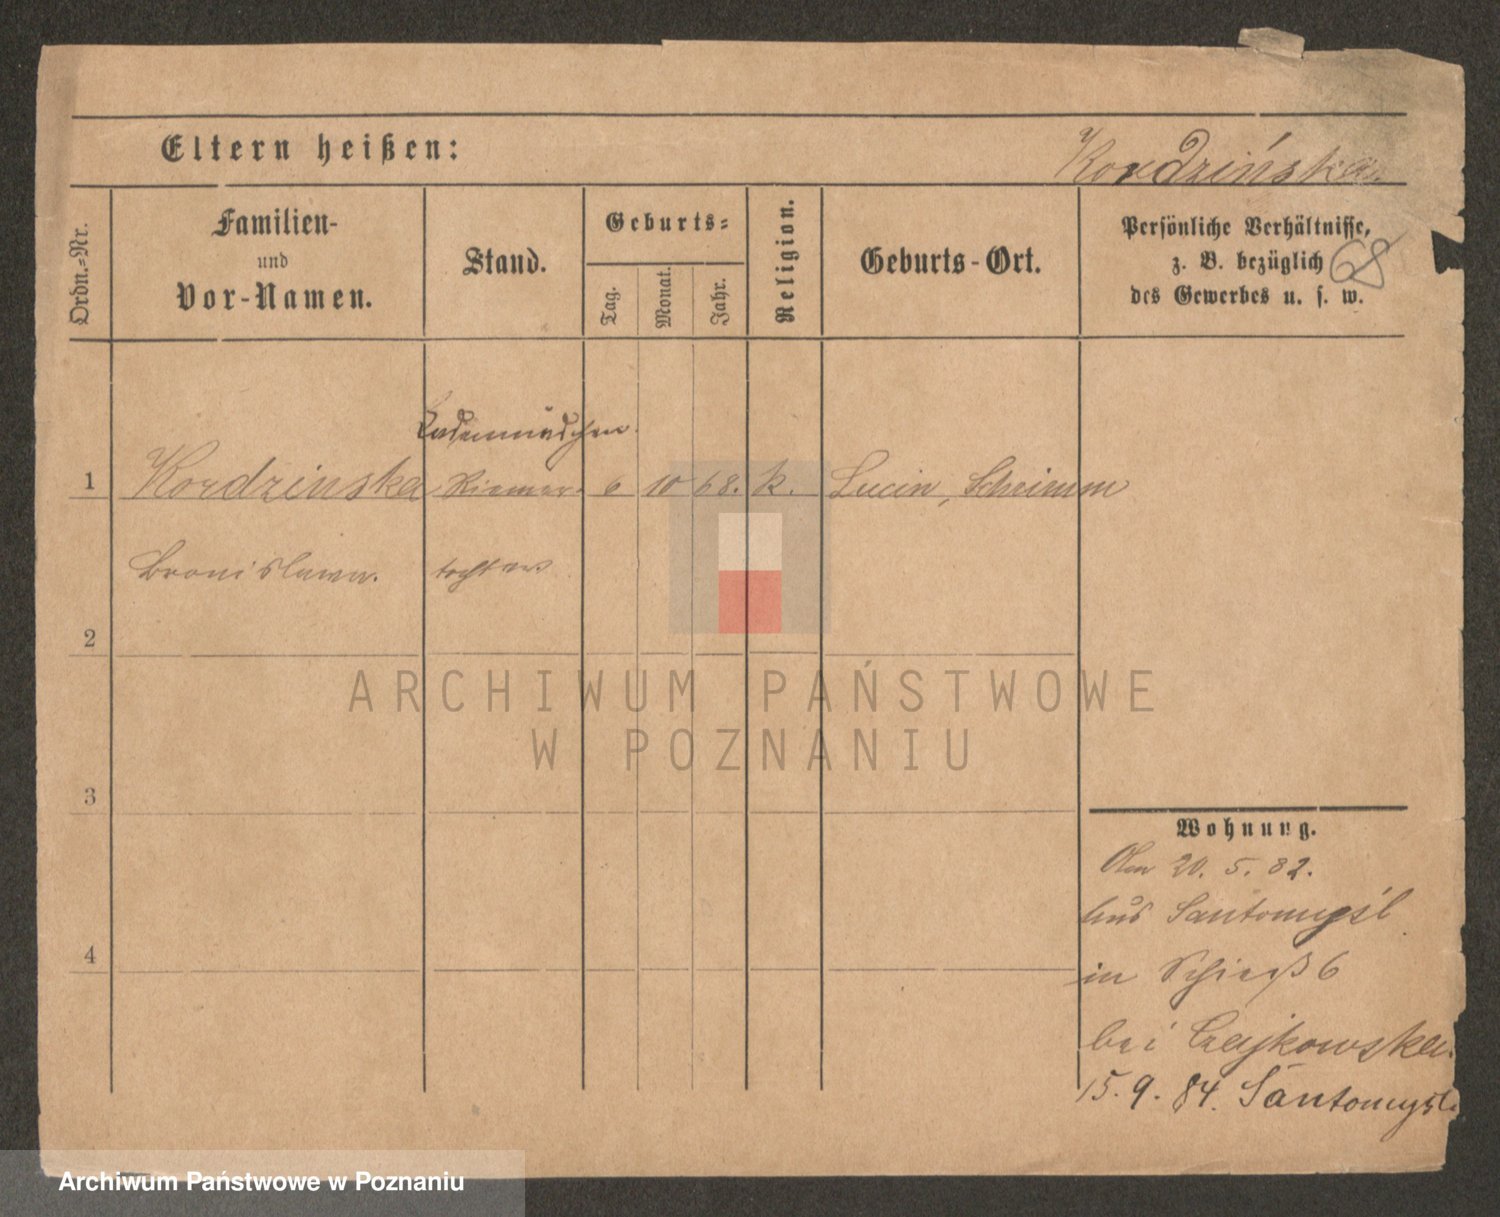 Eltern heißen:
Kordzińska
Ordn.-Nr.
Familien-
und
Vor-Namen.
Stand.
Geburts-
Tag.
Monat.
Jahr.
Religion.
Geburts-Ort.
Persönliche Verhältnisse,
z. B. bezüglich
des Gewerbes u. s. w.
68
Ladenmädchen.
1 Kordzinska Riemer- 6 10 68. k. Lucin, Schrimm
Bronislawa. tochter
2
3
4
Wohnung.
Am 20. 5. 82.
aus Santomyśl
in Schieß 6
bei Czajkowska.
15. 9. 84. Santomysl
ARCHIWUM PAŃSTWOWE
W POZNANIU
Archiwum Państwowe w Poznaniu